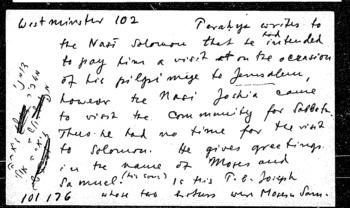 Westminster 102 Perahya writes to
the Nasi Solomon that he had intended
to pay him a visit on the occasion
of his pilgrimage to Jerusalem,
however the Nasi Joshia came
to visit the community for Sabbath.
Thus he had no time for the visit
to Solomon. He gives greetings
in the name of Moses and
Samuel. (his sons) Is this T.S. Joseph
101 176 whose two brothers were Moses Sam.